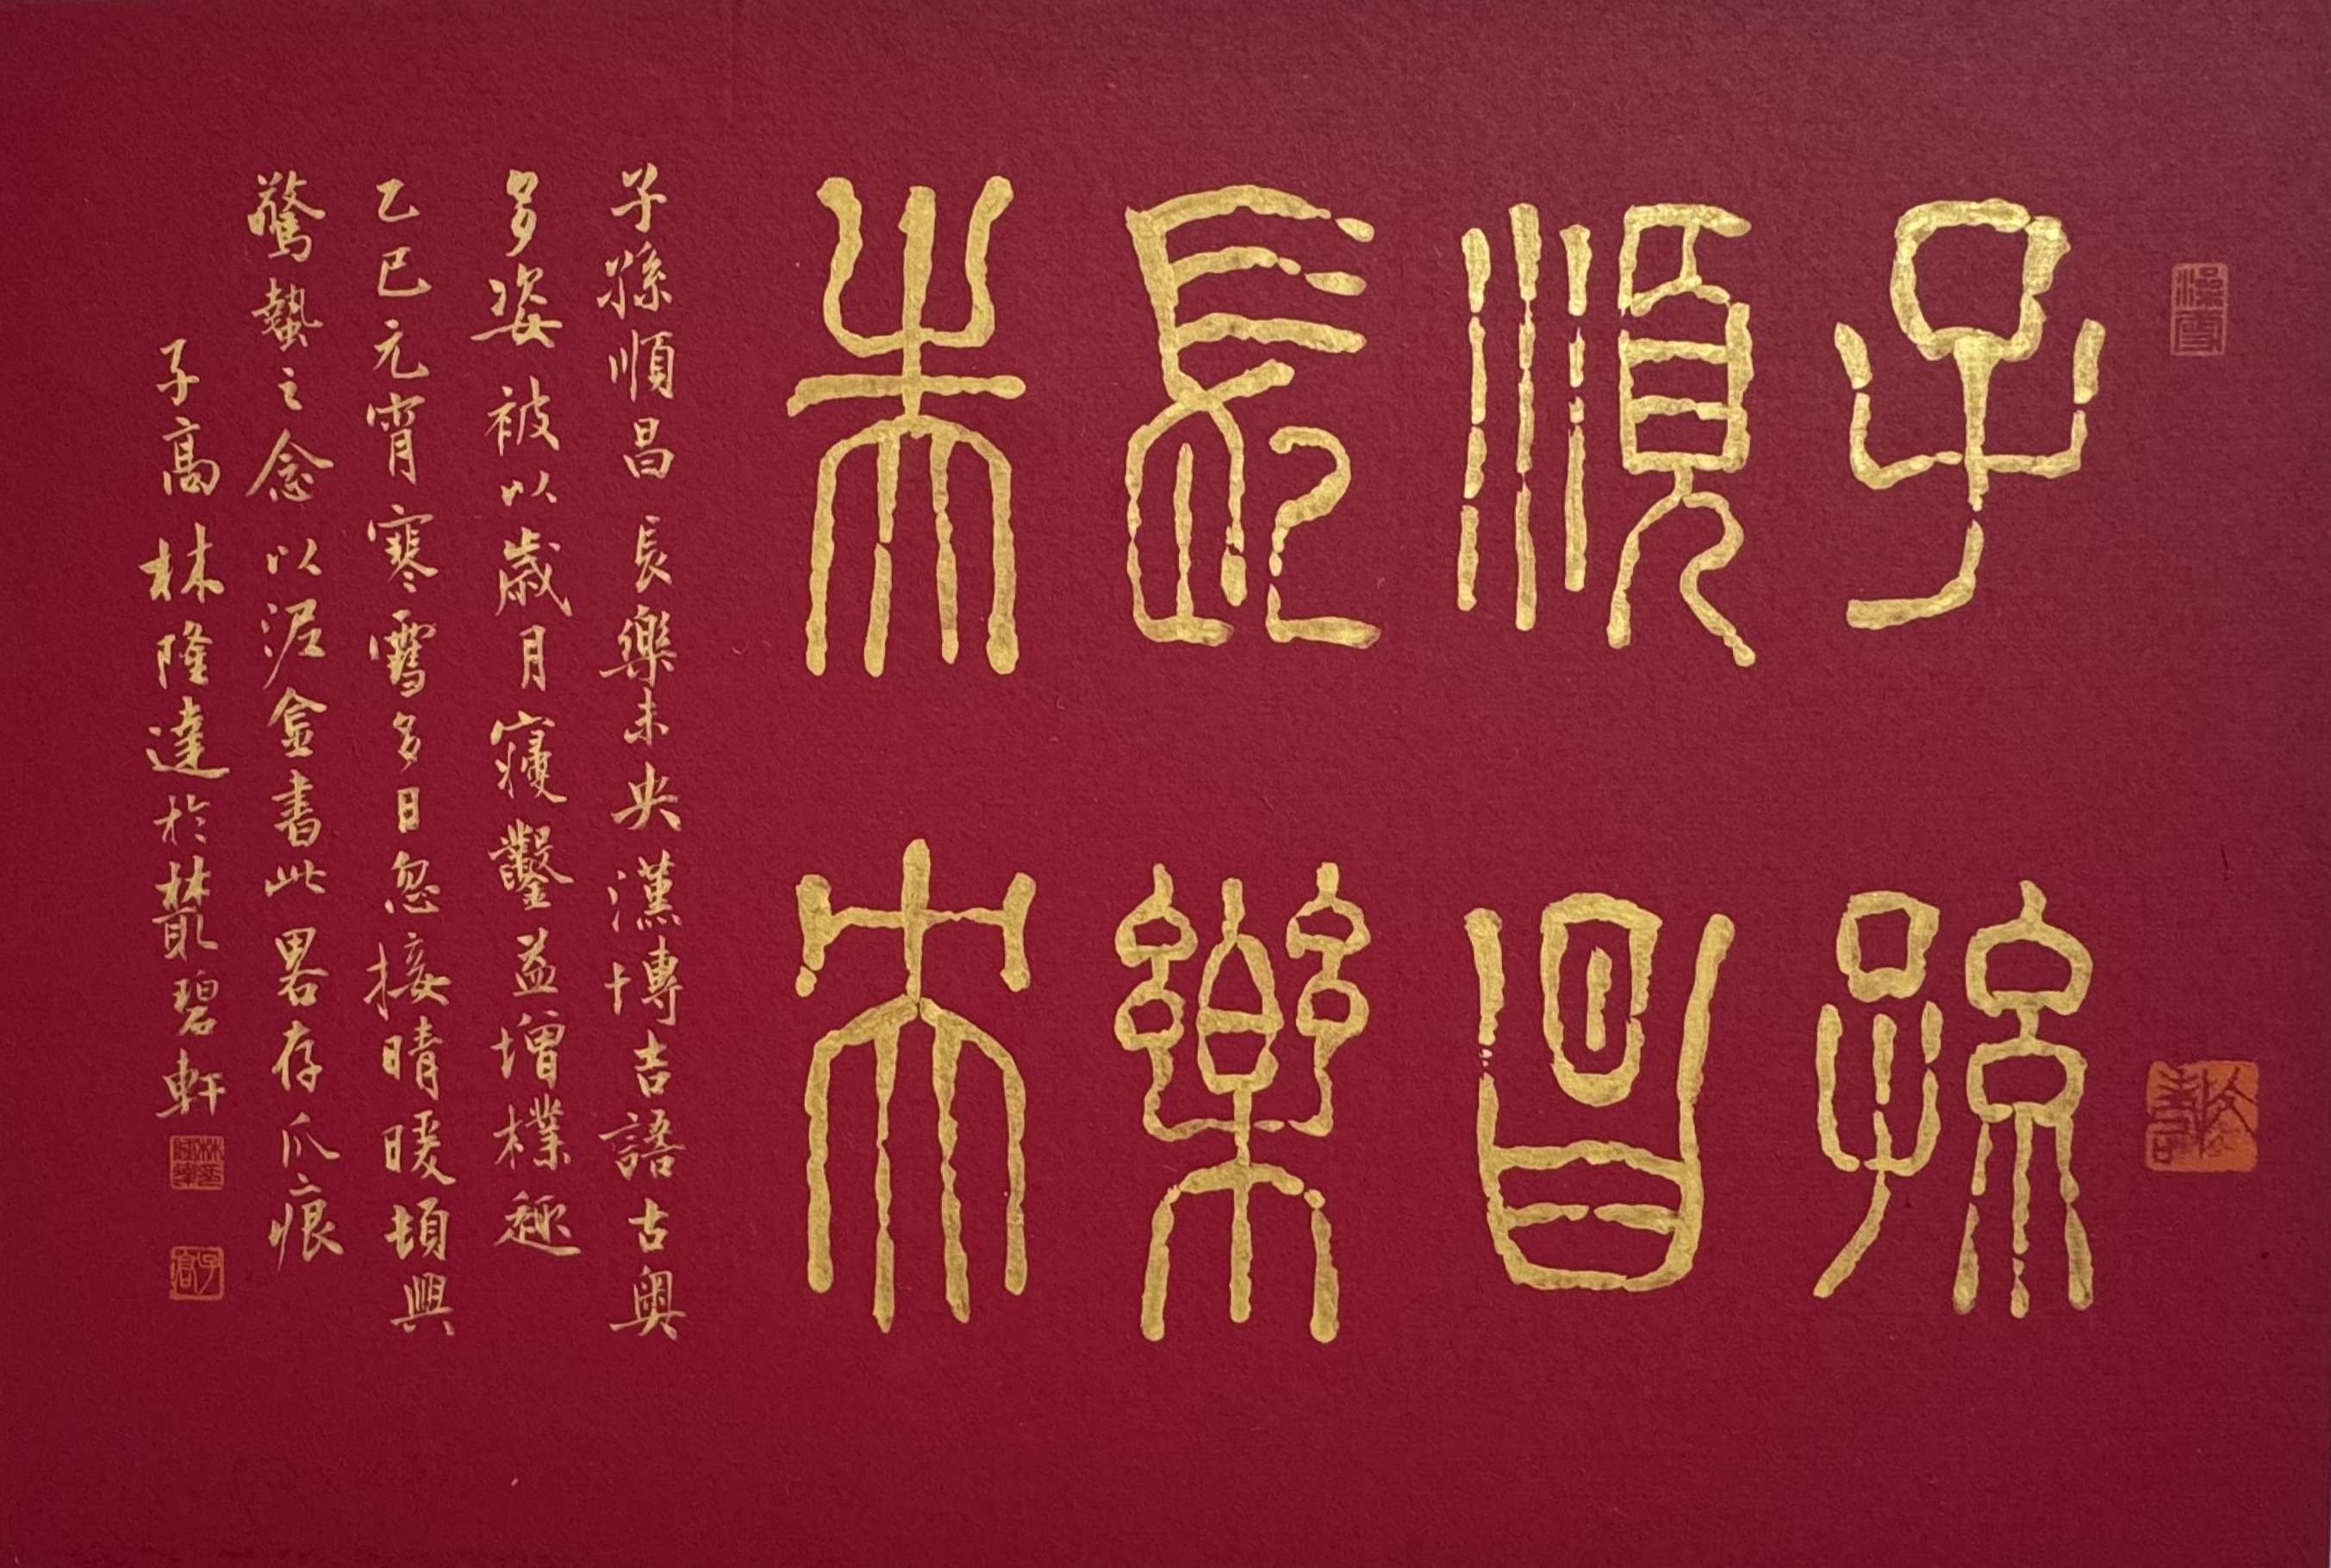 子孫
順昌
長樂
未央
子孫順昌長樂未央漢塼吉語古奧
多姿被以歲月寢鑿益增樸趣
乙巳元宵寒雪多日忽接晴暖頓興
驚蟄之念以泥金書此畧存爪痕
子高林隆達於叢碧軒
澡雪
林隆達
子高